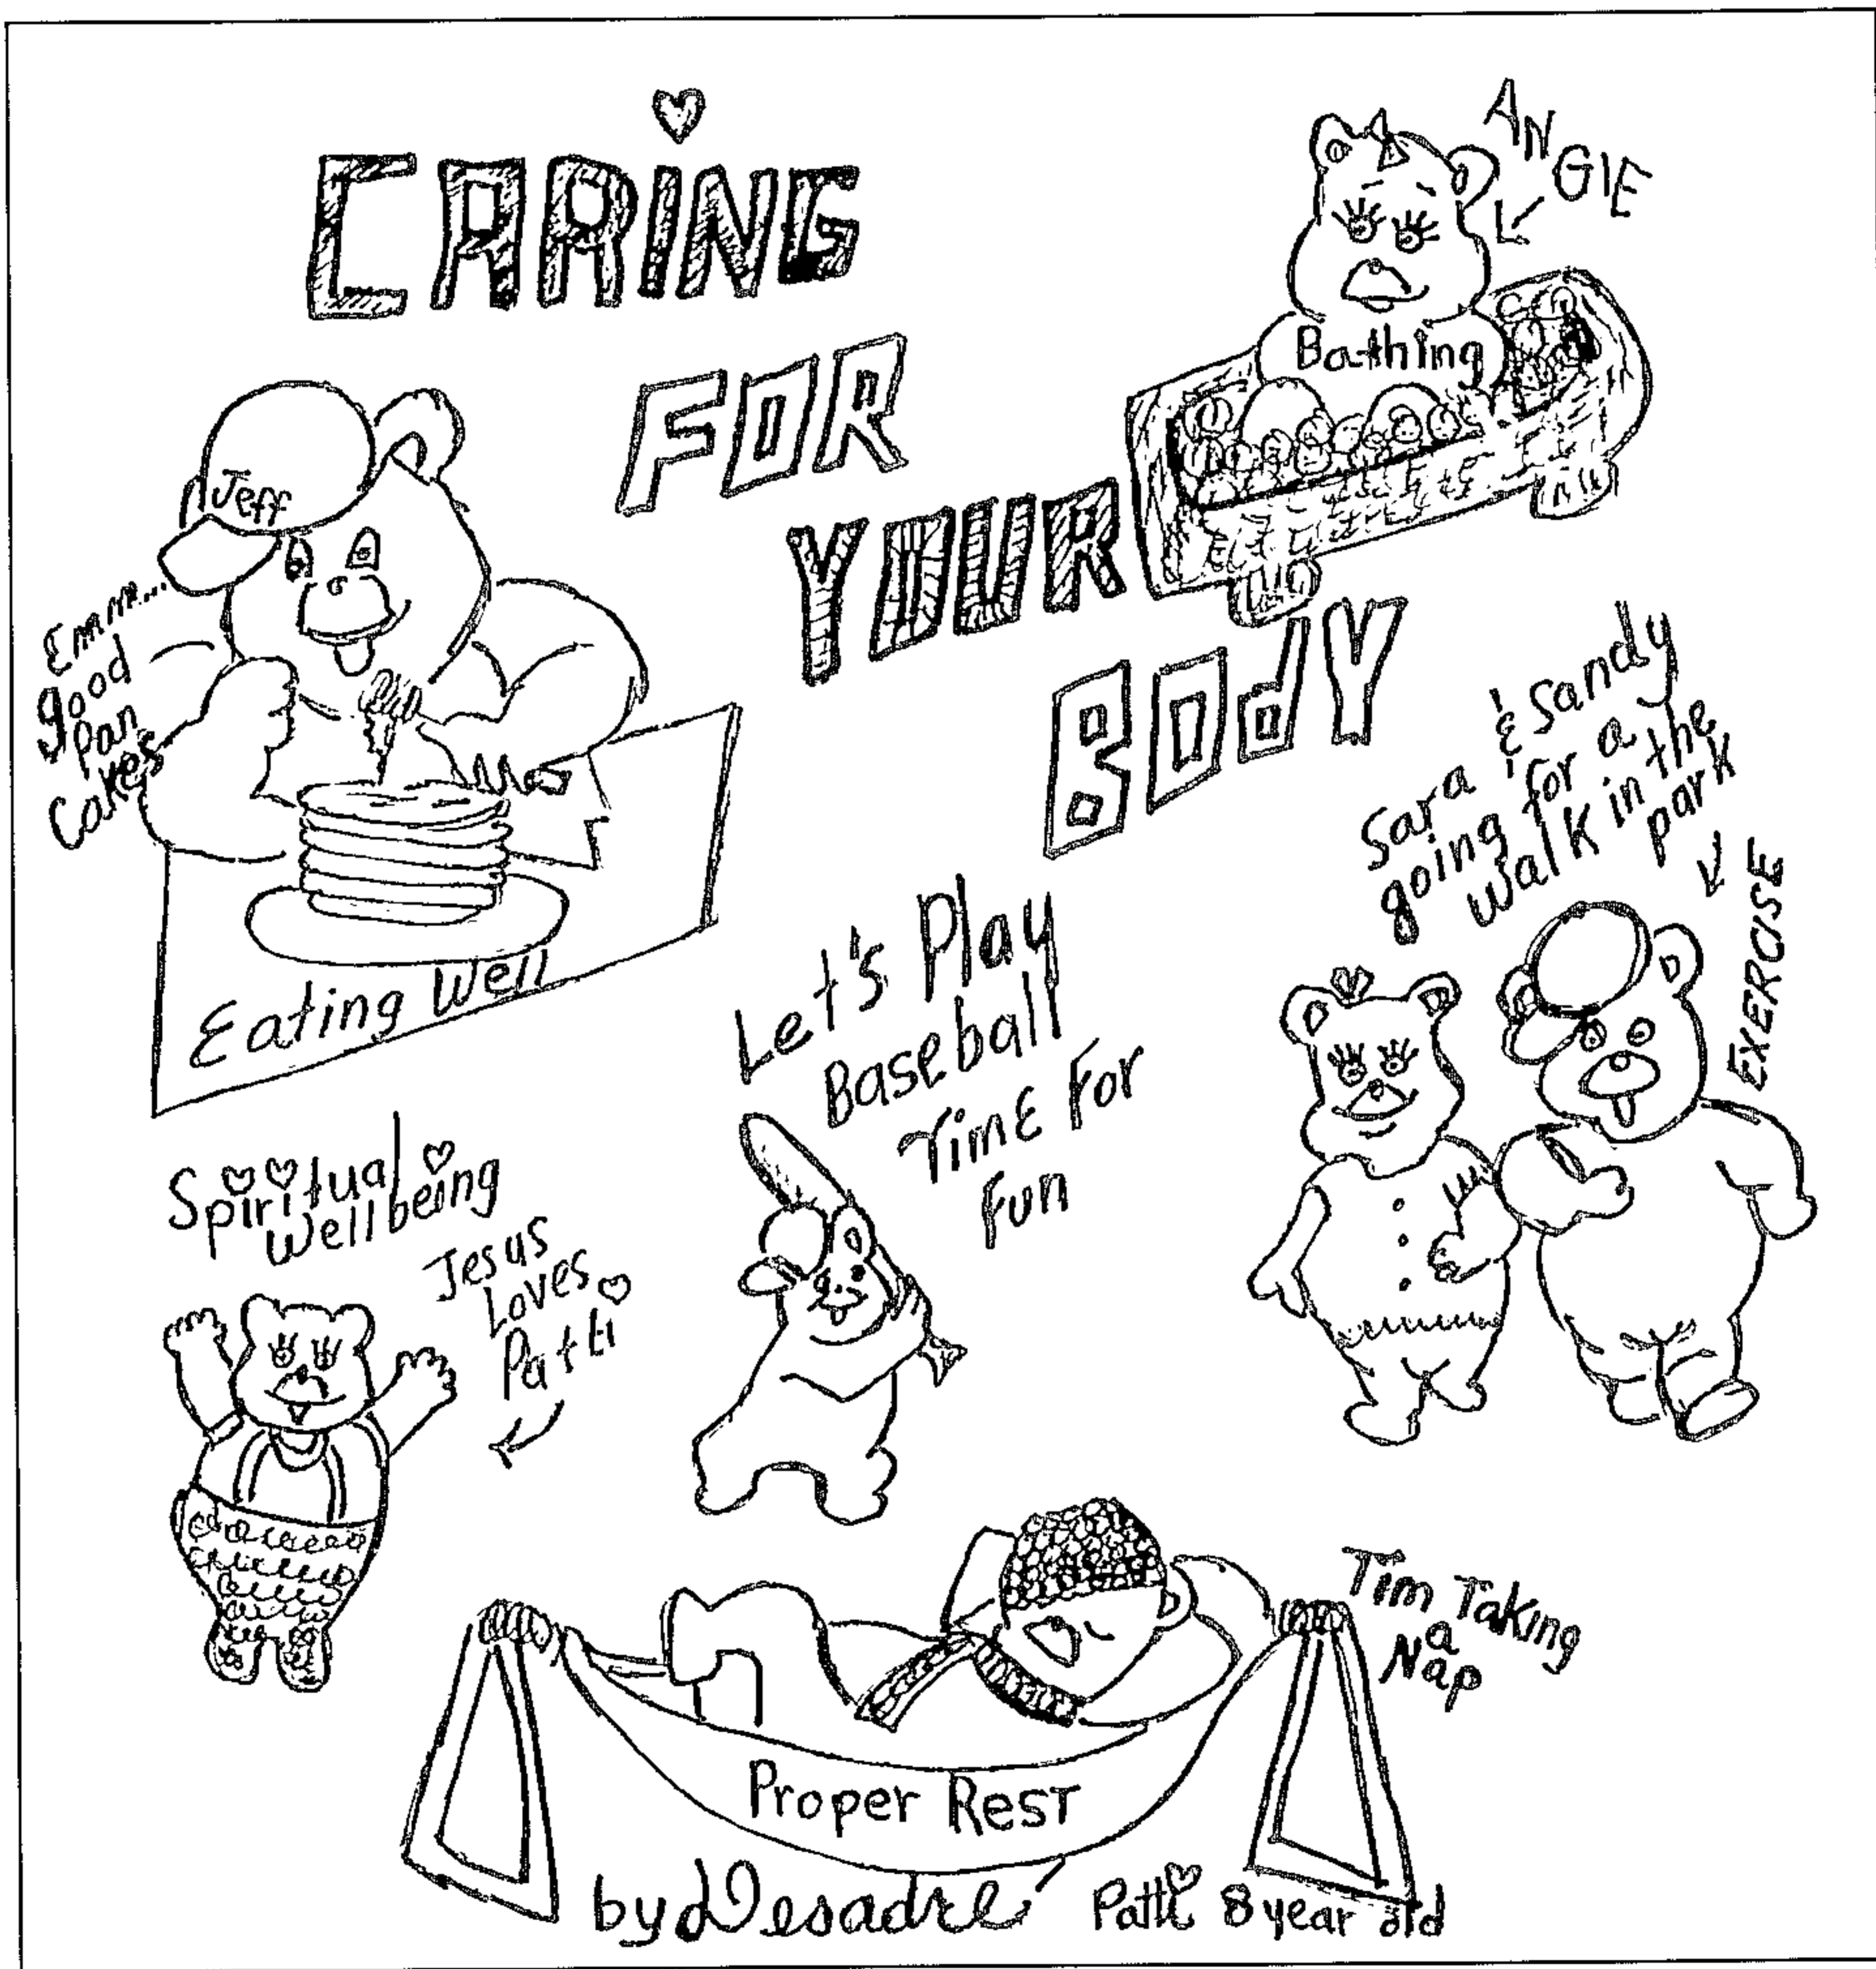 CARING
FOR
YOUR
BOdY
ANGIE
Bathing
Jeff
Emmm...
good
Pan
Cakes
Eating Well
Sara & Sandy
going for a
walk in the
park
EXERCISE
Let's Play
Baseball
Time For
Fun
Spiritual
Wellbeing
Jesus
Loves
Patti
Tim Taking
a
Nap
Proper REST
by Desadré Patti 8 year old